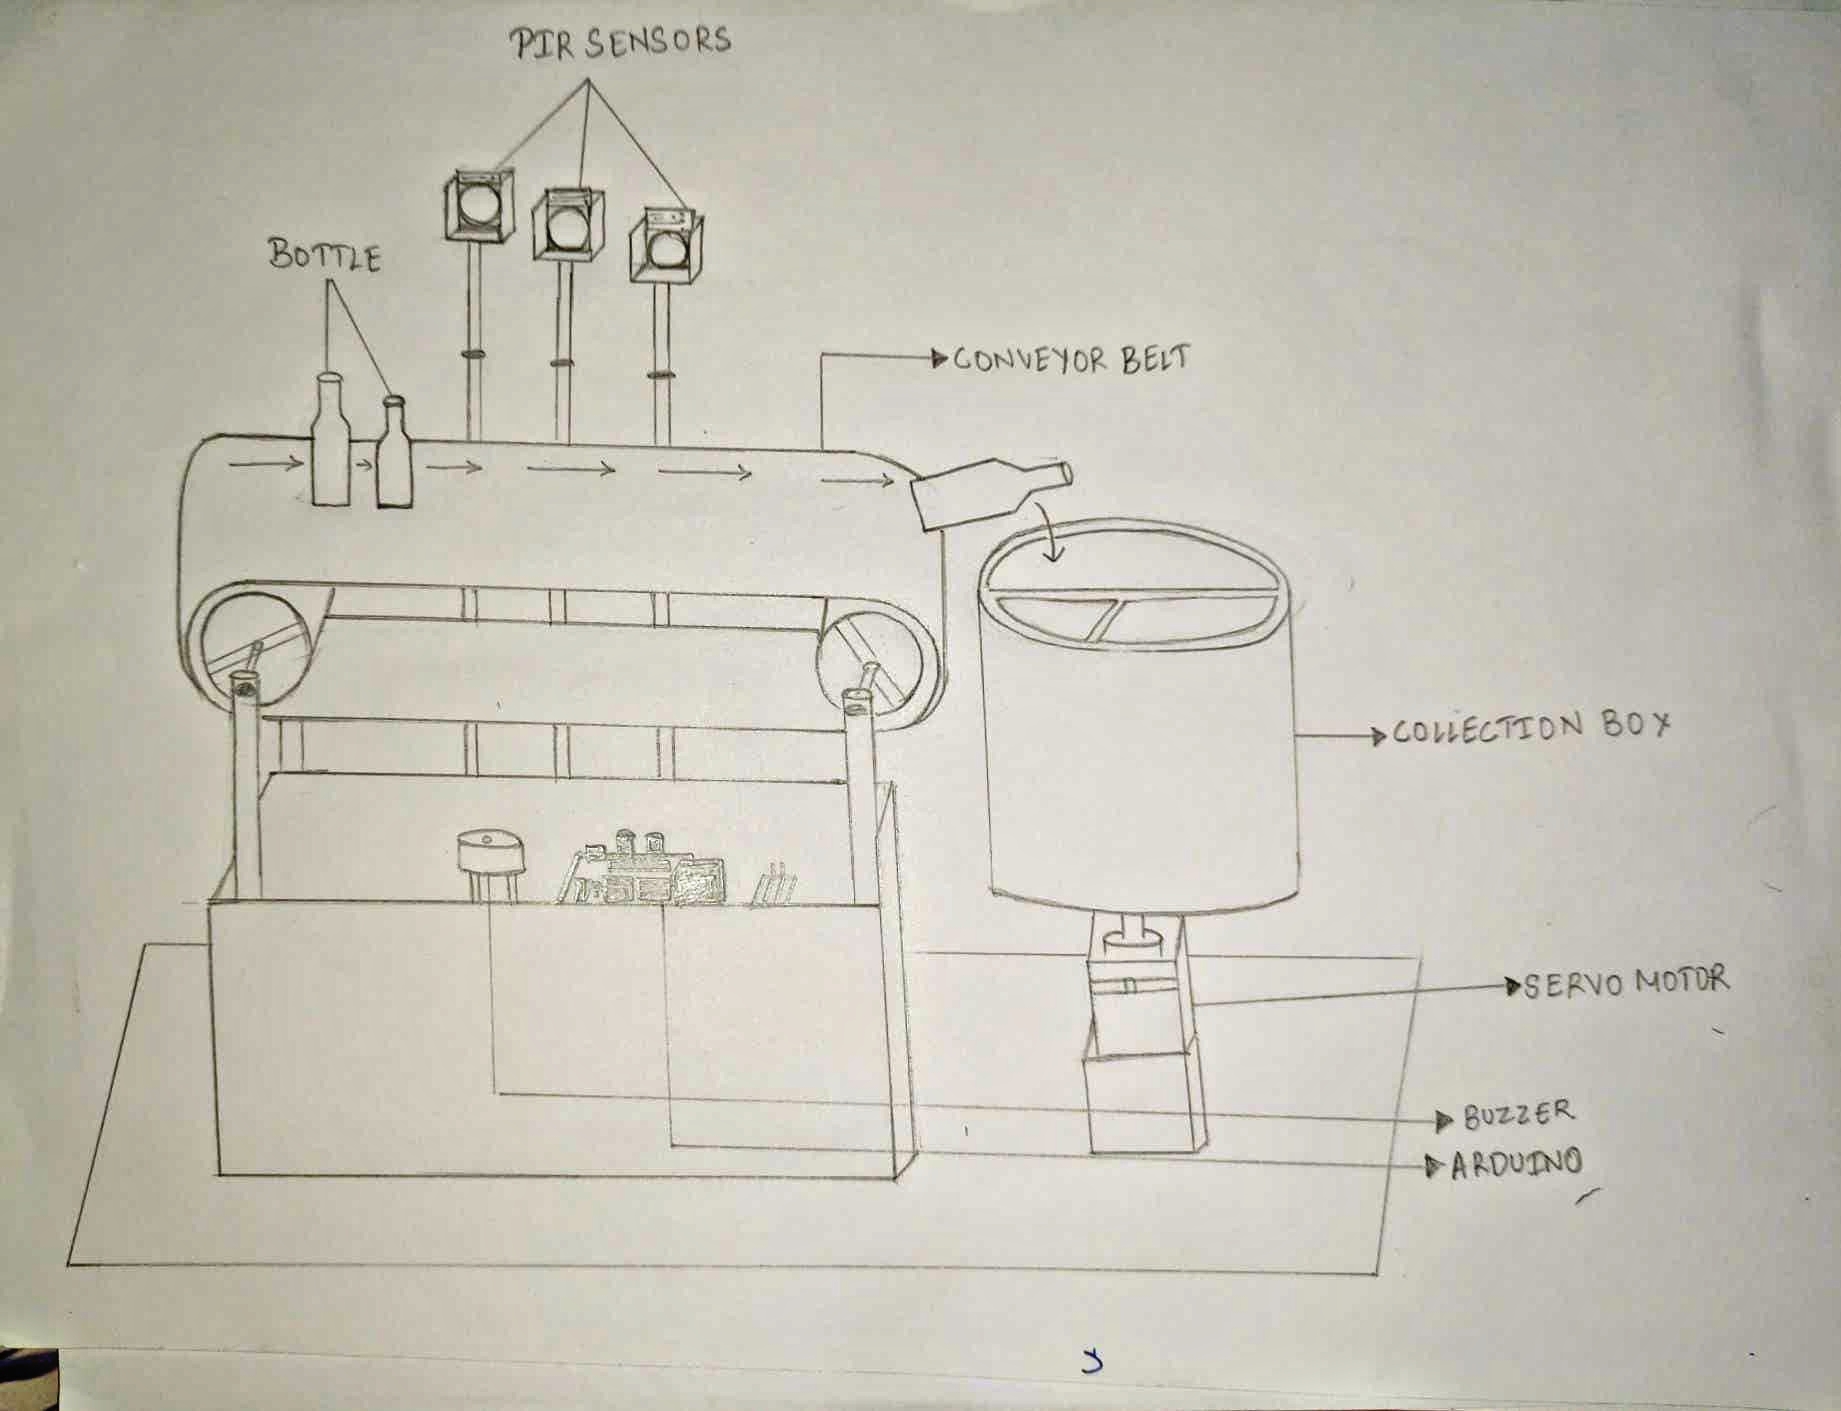 PIR SENSORS
BOTTLE
CONVEYOR BELT
COLLECTION BOX
SERVO MOTOR
BUZZER
ARDUINO